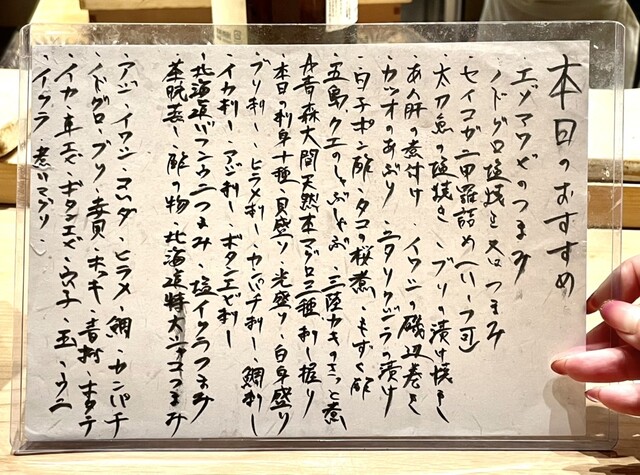 本日のおすすめ
エゾアワビのつまみ
ノドグロ塩焼き又はつまみ
・セイコガニ甲羅詰め(ハーフ可)
・太刀魚の塩焼き ・ブリの漬け焼き
・あん肝の煮付け ・イワシの磯辺巻き
・カツオのあぶり ・ニタリクジラの漬け
・白子ポン酢 ・タコの桜煮 ・もずく酢
・五島クエのしゃぶしゃぶ ・三陸カキのさっと煮
・青森大間天然本マグロ三種 刺し 握り
・本日の刺身十種 ・貝盛り ・光盛り ・白身盛り
・ブリ刺し ・ヒラメ刺し ・カンパチ刺し ・鯛刺し
・イカ刺し ・アジ刺し ・ボタンエビ刺し
・北海道バフンウニつまみ ・塩イクラつまみ
・茶碗蒸し ・酢の物 ・北海道特大シャコつまみ
・アジ ・イワシ ・コハダ ・ヒラメ ・鯛 ・カンパチ
・ノドグロ ・ブリ ・赤貝 ・ホッキ ・青柳 ・ホタテ
・イカ ・車エビ ・ボタンエビ ・穴子 ・玉 ・ウニ
・イクラ ・煮ハマグリ ・